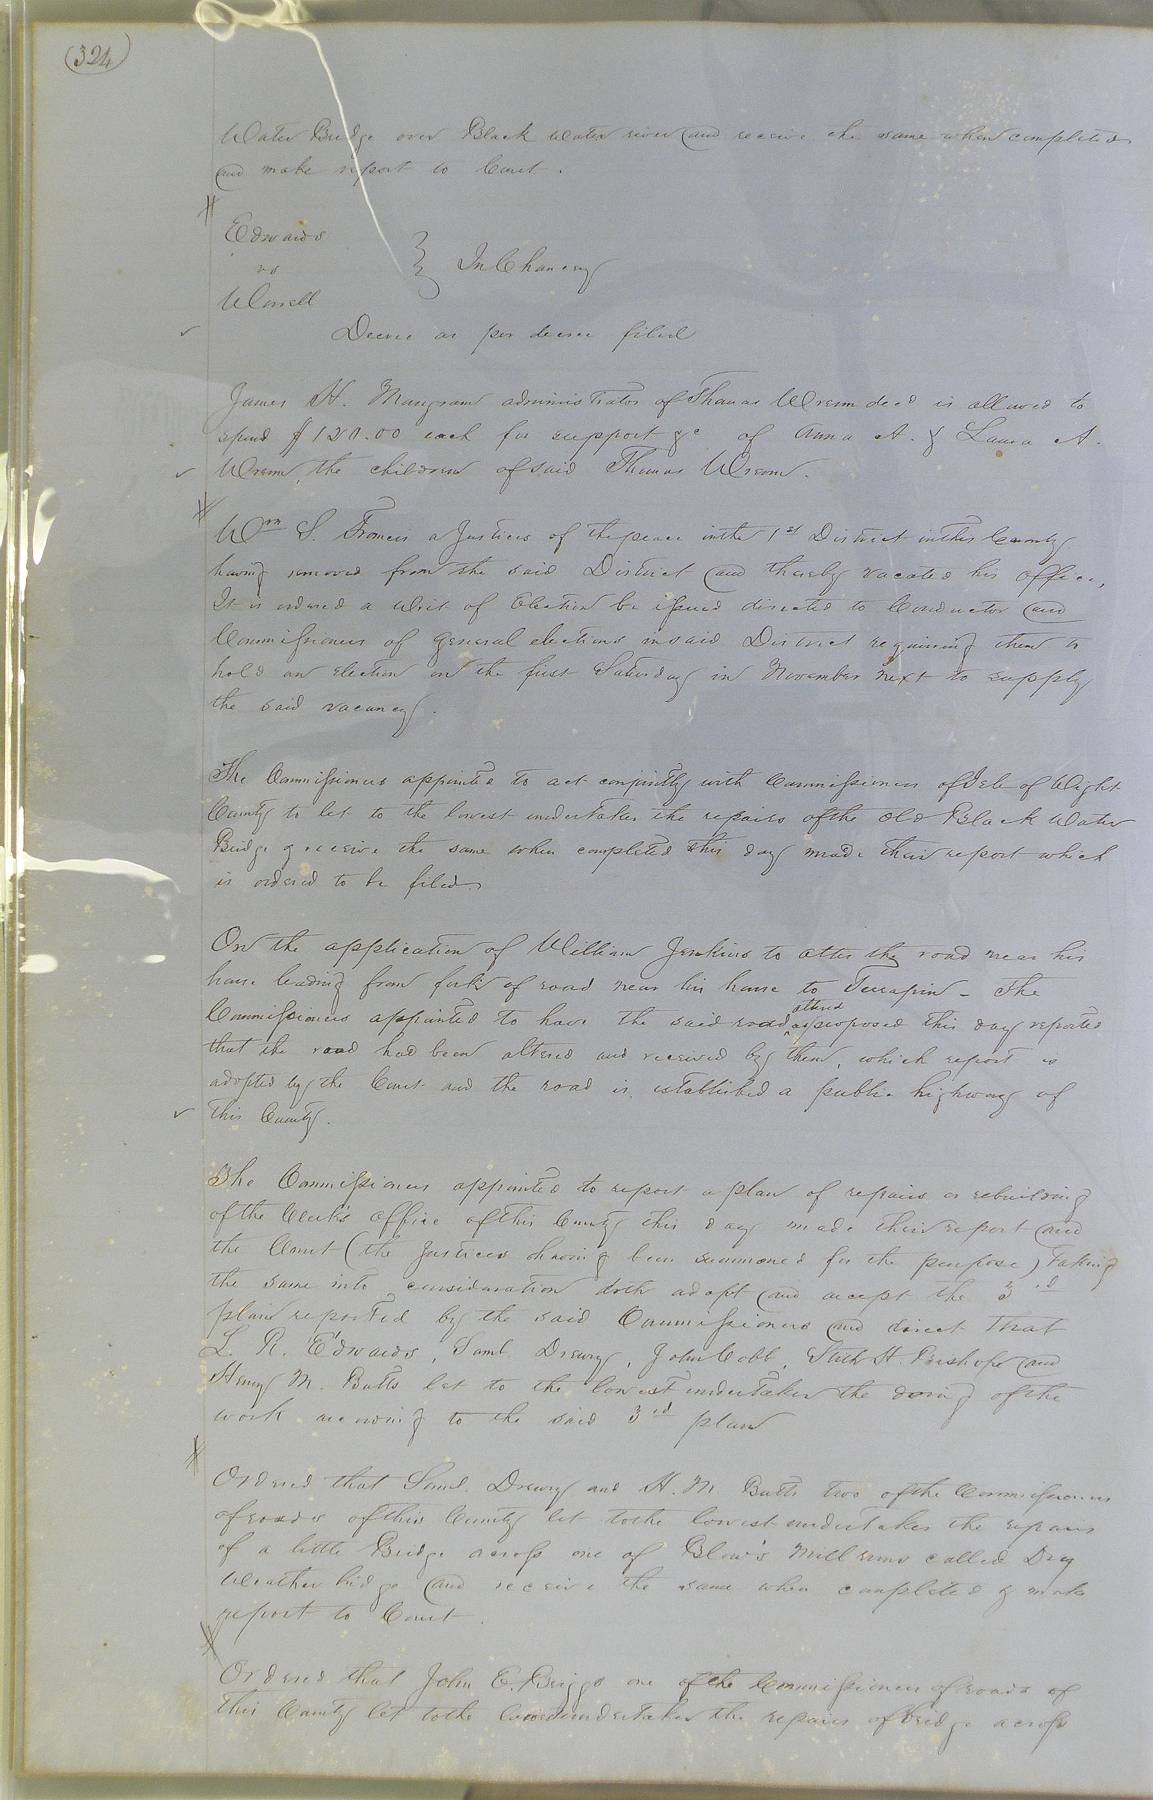 (324)
Water Bridge over Black Water river and receive the same when completed
and make report to Court.
Edwards
vs
In Chancery
Worrell
Decree as per decree filed
James H. Mangram administrator of Thomas Wrenn decd is allowed to
spend $120.00 each for support &c of Anna A. & Laura A.
Wrenn, the children of said Thomas Wrenn.
Wm S. Francis a Justices of the peace in the 1st District in this County
having removed from the said District and thereby vacated his office,
It is ordered a Writ of Election be issued directed to Conductor and
Commissioners of general elections in said District requiring them to
hold an election on the first Saturday in November next to supply
the said vacancy.
The Commissioners appointed to act conjointly with Commissioners of Isle of Wight
County to let to the lowest undertaker the repairs of the Old Black Water
Bridge & receive the same when completed this day made their report which
is ordered to be filed
On the application of William Jenkins to alter the road near his
house leading from fork of road near his house to Terrapin - The
Commissioners appointed to have the said road altered as proposed this day reported
that the road had been altered and received by them, which report is
adopted by the Court and the road is established a public highway of
this County.
The Commissioners appointed to report a plan of repairs or rebuilding
of the Clerk's office of this County this day made their report and
the Court (the Justices having been summoned for the purpose) taking
the same into consideration doth adopt and accept the 3rd
plan reported by the said Commissioners and direct that
L. R. Edwards, Saml. Drewry, John Cobb, Stith H. Bishop and
Henry M. Butts let to the lowest undertaker the doing of the
work according to the said 3rd plan
Ordered that Saml. Drewry and H. M. Butts two of the Commissioners
of roads of this County let to the lowest undertaker the repairs
of a little Bridge across one of Blow's Mill runs called Dry
Weather bridge and receive the same when completed & make
report to Court.
Ordered that John E. Briggs one of the Commissioners of roads of
this County let to the lowest undertaker the repairs of bridge across